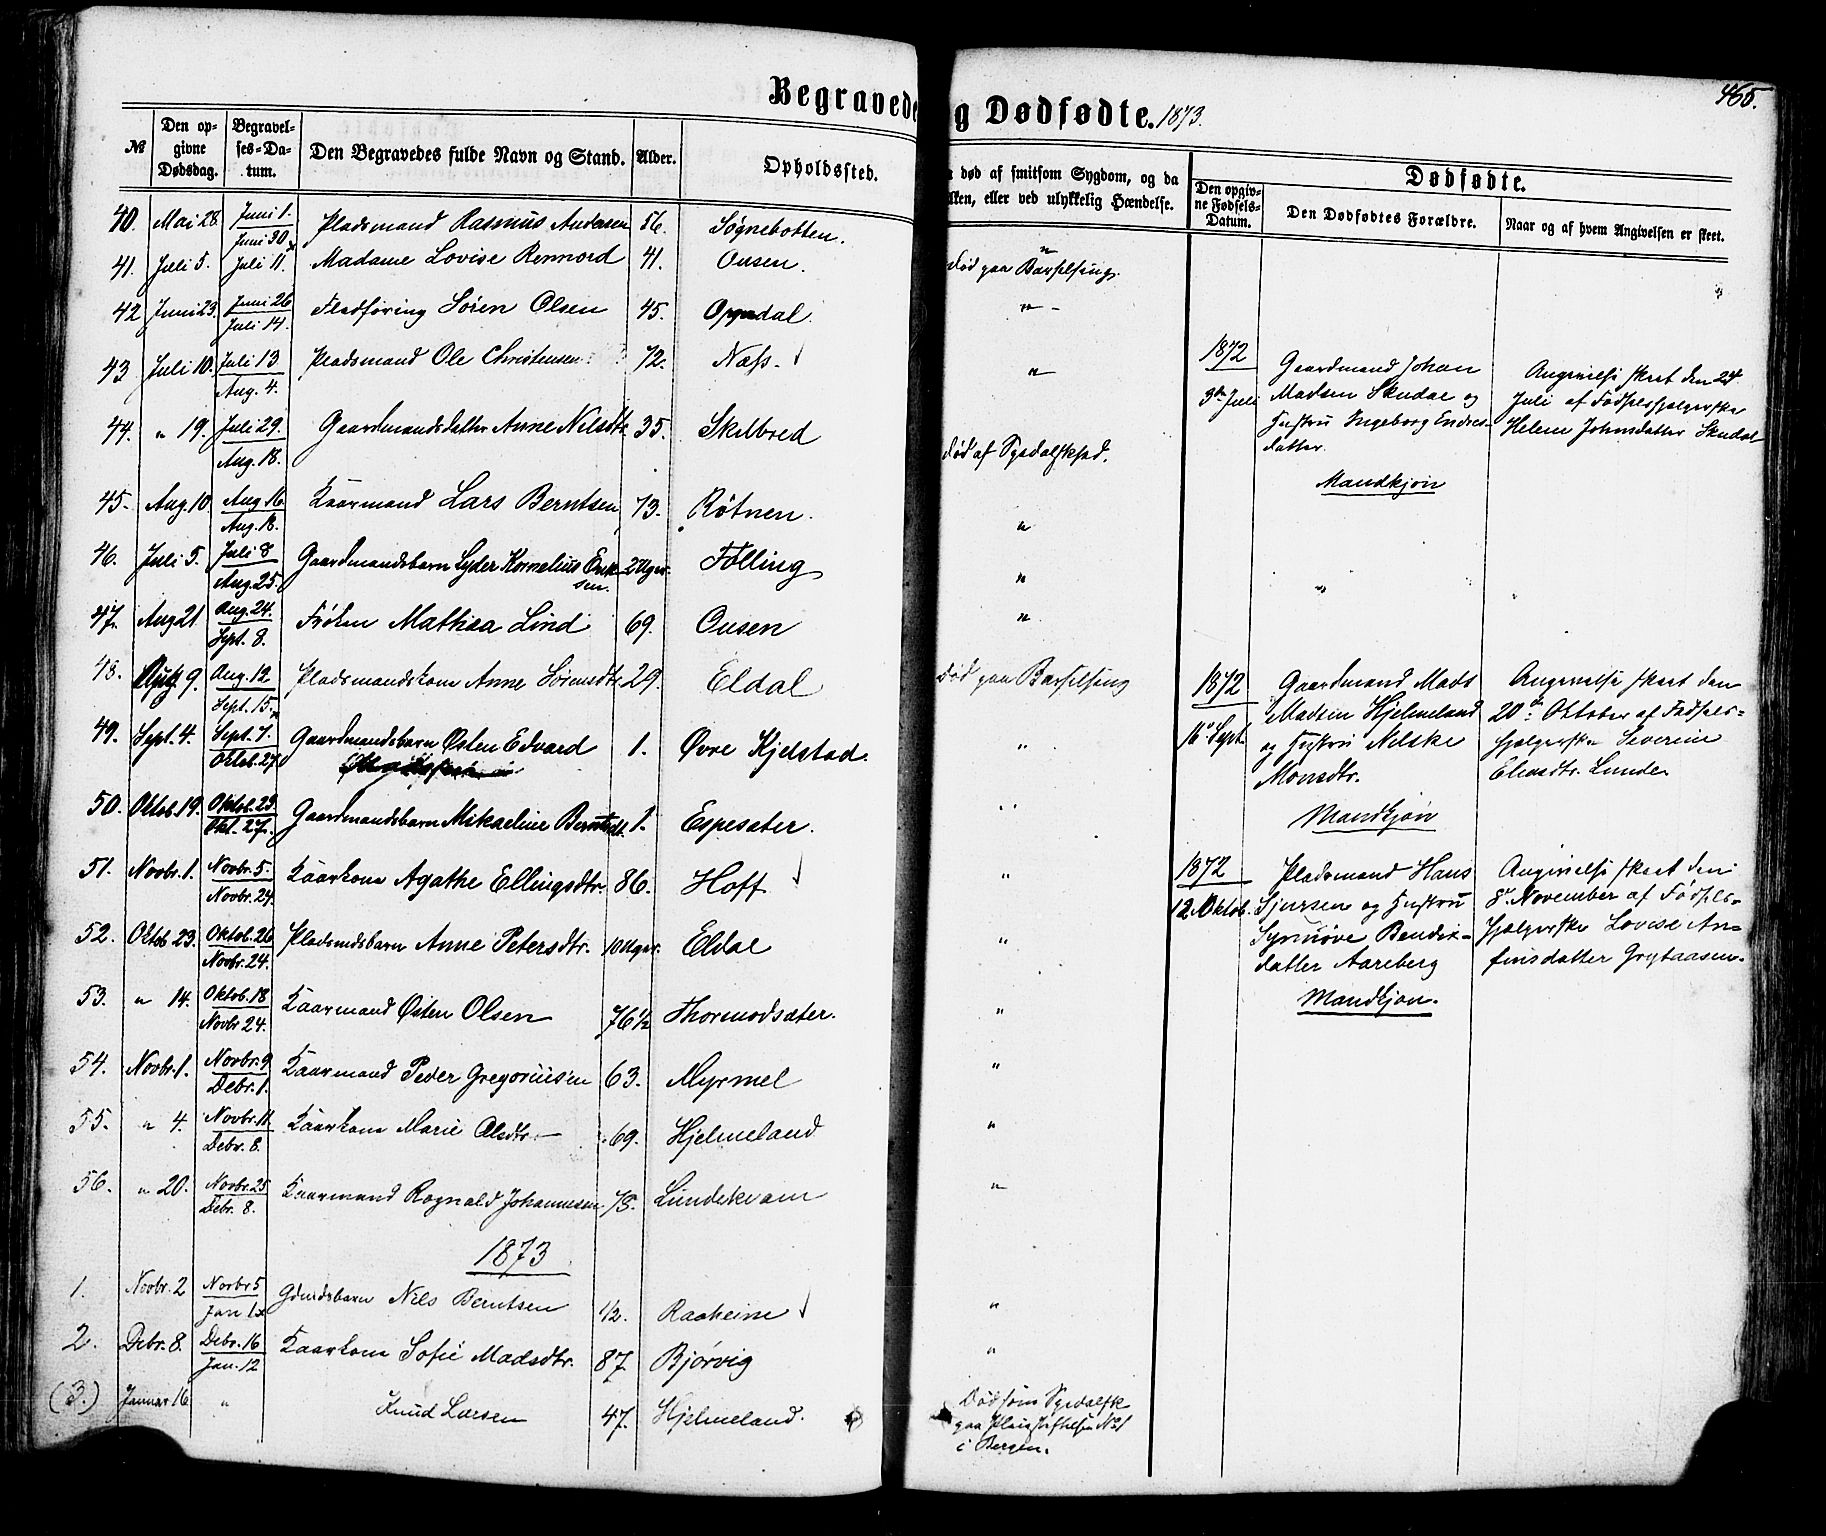 Begravede
№ Den opgivne Dødsdag. Begravelses-Datum. Den Begravedes fulde Navn og Stand. Alder. Opholdssted.
40. Mai 28. Juni 1. Juni 30 Pladsmand Rasmus Andersen 56. Søgnebotten.
41. Juli 5. Juli 11. Madame Lovise Rennord 41. Ousen.
42 Juni 23. Juni 26 Juli 14. Fladføring Sören Olsen 45. Oppedal.
43 Juli 10. Juli 13 Aug. 4. Pladsmand Ole Christensen 72. Næss.
44. " 19. Juli 29. Aug. 18. Gaardmandsdatter Anne Nilsdtr. 35. Skilbred
45. Aug. 10. Aug. 16 Aug. 18. Kaarmand Lars Berntsen 73. Røtnen.
46. Juli 5. Juli 8 Aug. 25. Gaardmandsbarn Syder Kornelius Erik-
sen. 2 Uger. Følling
47. Aug 21. Aug. 24. Sept. 8. Frøken Mathea Lind 69. Ousen
48. 9. Aug. 12 Sept. 15. Pladsmandskone Anne Sörensdtr. 29. Eldal
49. Sept. 4. Sept. 7. Oktob. 27 Gaardmandsbarn Østen Edvard 1. Øvre Kjelstad.
50. Oktob. 19. Oktob. 23 Okt. 27. Gaardmandsbarn Mikaeline Berntsdt. 1. Espesæter.
51. Novbr. 1. Novbr. 5. Novbr. 24. Kaarkone Agathe Ellingsdtr. 86. Hoff.
52. Oktob. 23. Oktob. 26 Novbr. 24. Pladsmdsbarn Anne Petersdtr. 10 Uger. Eldal
53. " 14. Oktob. 18 Novbr 24. Kaarmand Østen Olsen 76 1/2 Thormodsæter.
54. Novbr. 1. Novbr. 9 Debr. 1. Kaarmand Peder Gregoriusen 63. Myrmel
55. " 4. Novbr. 11. Debr. 8. Kaarkone Marie Olsdtr. 69. Hjelmeland
56. " 20. Novbr. 25 Debr. 8. Kaarmand Rognald Johannesen 75. Lundekvam
1873
1. Novbr. 2 Novbr 5 Jan 12 Gdmdsbarn Nils Berntsen 1/2. Raaheim
2. Debr. 8. Debr. 16 Jan. 12 Kaarkone Sofie Madsdtr. 87. Bjørvig
(3.) Januar 16 " Knud Larsen 47. Hjelmeland.
g Dødfødte. 1873.
465.
død af smitsom Sygdom, og da
lken, eller ved ulykkelig Hændelse.
Dødfødte.
Den opgivne Fødsels-Datum. Den Dødfødtes Forældre. Naar og af hvem Angivelsen er skeet.
"
Død paa Barselseng.
" -
"
Død af Spedalskhed.
"
"
"
Død paa Barselseng
"
"
"
"
"
"
"
"
"
"
Død som Spedalsk
paa Pleiestiftelsen No 1
i Bergen.
1872
3die Juli
Gaardmand Johan
Madsen Skudal og
Hustru Ingeborg Endres-
datter.
Mandkjøn
Angivelse skeet den 24
Juli af Fødselshjælperske
Helene Johnsdatter Skudal
"
1872
16 Sept.
Gaardmand Mads
Madsen Hjelmeland
og Hustru Nilske
Monsdtr.
Mandkjøn
Angivelse skeet den
20de Oktober af Fødsels-
hjælperske Severine
Eliasdtr. Lunde.
1872
12 Oktob.
Pladsmand Hans
Sjursen og Hustru
Synnøve Bendix-
datter Aareberg
Mandkjøn.
Angivelse skeet den
8de November af Fødsels-
hjælperske Lovise An-
finsdatter Grytaasen.